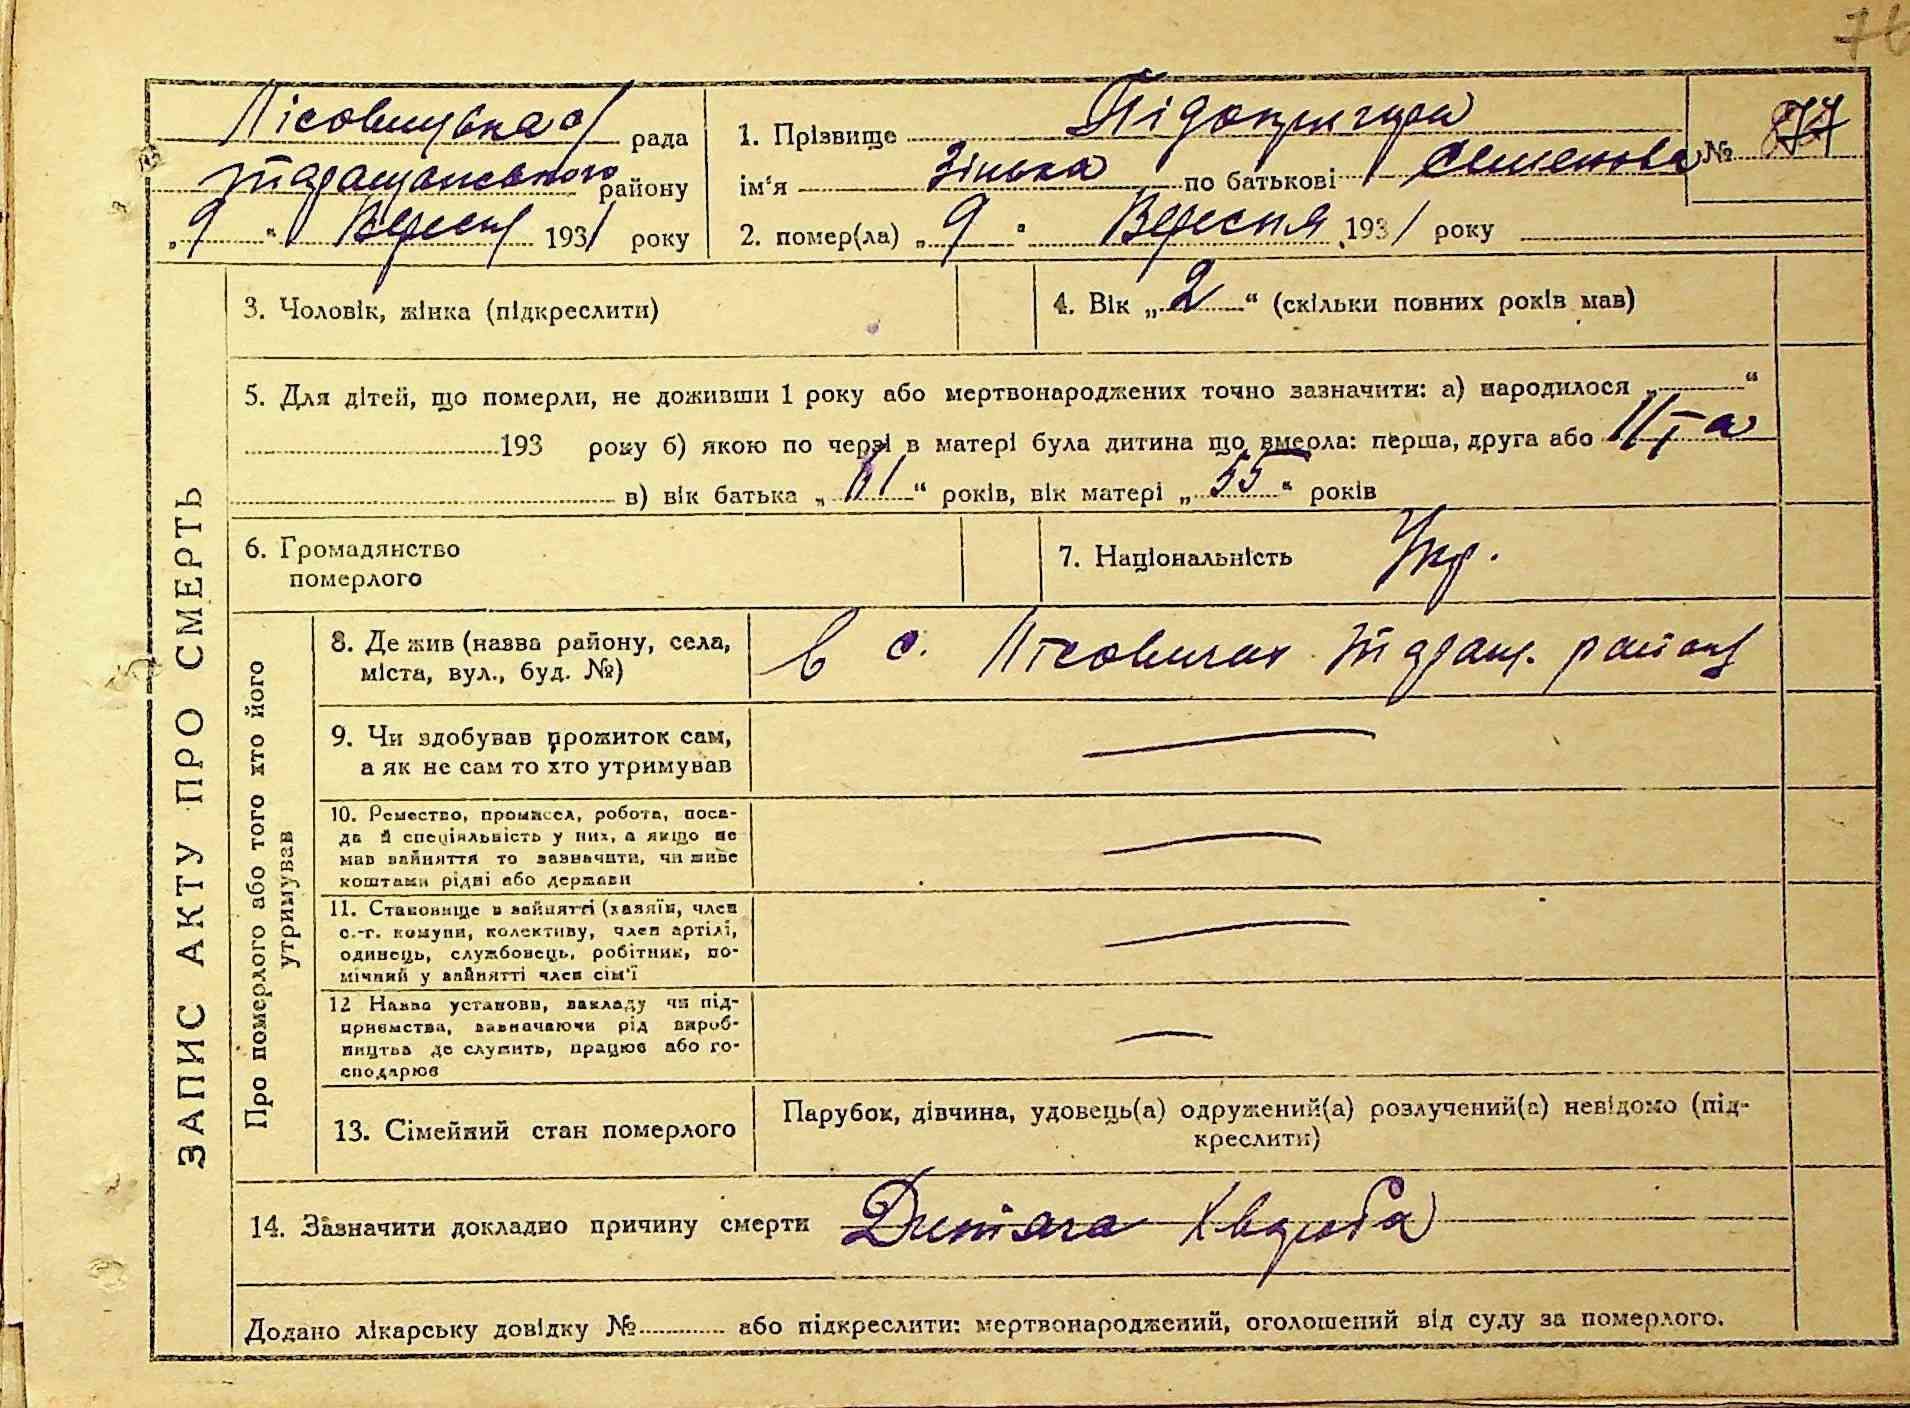 76
Лісовицька с/рада
Таращанського району
„9“ Вересня 1931 року
1. Прізвище Підопригора
ім'я Зінька по батькові Семенова
№ 77
2. помер(ла) „9“ Вересня 1931 року
ЗАПИС АКТУ ПРО СМЕРТЬ
3. Чоловік, жінка (підкреслити)
4. Вік „2“ (скільки повних років мав)
5. Для дітей, що померли, не доживши 1 року або мертвонароджених точно зазначити: а) народилося „ “
193 року б) якою по черзі в матері була дитина що вмерла: перша, друга або
в) вік батька „61“ років, вік матері „55“ років
6. Громадянство
померлого
7. Національність Укр.
Про померлого або того хто його
утримував
8. Де жив (назва району, села,
міста, вул., буд. №)
в с. Лісовичах Таращ. району
9. Чи здобував прожиток сам,
а як не сам то хто утримував
10. Ремество, промисел, робота, поса-
да й спеціяльність у них, а якщо не
мав зайняття то зазначити, чи живе
коштами рідні або держави
11. Становище в зайнятті (хазяїн, член
с.-г. комуни, колективу, член артілі,
одинець, службовець, робітник, по-
мічний у зайнятті член сім'ї
12 Назва установи, закладу чи під-
приємства, зазначаючи рід вироб-
ництва де служить, працює або го-
сподарює
13. Сімейний стан померлого
Парубок, дівчина, удовець(а) одружений(а) розлучений(а) невідомо (під-
креслити)
14. Зазначити докладно причину смерти Дитяча Хвороба
Додано лікарську довідку № або підкреслити: мертвонароджений, оголошений від суду за померлого.